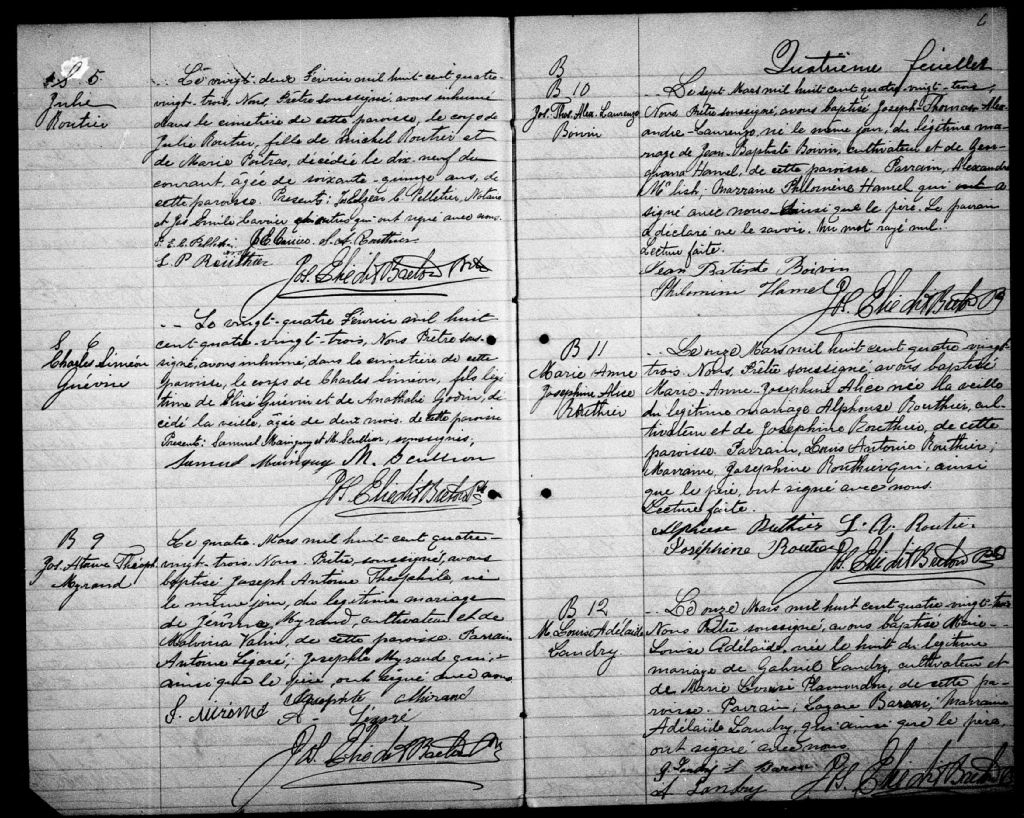 S. 5
Julie
Routier
Le vingt-deux Février mil huit-cent quatre-
vingt-trois, Nous, Prêtre soussigné, avons inhumé
dans le cimetière de cette paroisse, le corps de
Julie Routier, fille de Michel Routier et
de Marie Poitras, décédée le dix-neuf du
courant, âgée de soixante-quinze ans, de
cette paroisse. Présents: Js Edgar C. Pelletier, Notaire
et Jos Emile Carrier qui ont signé avec nous.
J. E. C. Pelletier J E Carrier S. A. Routhier
L. P. Routhier
Jos. Elie dit Breton Ptre
S. 6
Charles Siméon
Guérin
Le vingt-quatre Février mil huit
cent quatre-vingt-trois, Nous Prêtre sous-
signé, avons inhumé, dans le cimetière de cette
Paroisse, le corps de Charles Siméon, fils légi-
time de Elisé Guérin et de Anathalie Godin, dé-
cédé la veille, âgée de deux mois, de cette paroisse
Présents: Samuel Mainguy et M. Scullion, soussignés,
Samuel Mainguy M. Scullion
Jos. Elie dit Breton Ptre
B 9
Jos. Antoine Théoph.
Myrand
Le quatre Mars mil huit cent quatre-
vingt-trois, Nous Prêtre, soussigné, avons
baptisé Joseph Antoine Théophile, né
le même jour, du légitime mariage
de Jérôme Myrand, cultivateur et de
Malvina Valin, de cette paroisse. Parrain
Antoine Légaré; Josephte Myrand qui,
ainsi que le père, ont signé avec nous
J. Jérôme Josephte Mirand
A. Légaré
Jos. Elie dit Breton Ptre
6
Quatrième feuillet
B
B 10
Jos. Thos. Alex. Laurenzo
Boivin
Le sept Mars mil huit cent quatre-vingt-trois,
Nous, Prêtre soussigné, avons baptisé Joseph-Thomas-Alex-
andre-Laurenzo, né le même jour, du légitime ma-
riage de Jean-Baptiste Boivin, cultivateur et de
Hamel, de cette paroisse. Parrain, Alexandre
Marraine Philomène Hamel qui a
signé avec nous ainsi que le père. Le parrain
a déclaré ne le savoir. Un mot rayé nul.
Lecture faite.
Jean Batiste Boivin
Philomine Hamel
Jos. Elie dit Breton Ptre
B 11
Marie Anne
Josephine Alice
Routhier
Le onze Mars mil huit cent quatre vingt-
trois. Nous, Prêtre soussigné, avons baptisé
Marie-Anne-Josephine Alice née la veille
du légitime mariage Alphonse Routhier, cul-
tivateur et de Josephine Routhier, de cette
paroisse. Parrain, Louis Antoine Routhier;
Marraine Josephine Routhier qui, ainsi
que le père, ont signé avec nous.
Lecture faite.
Alphonse Routhier L. A. Routier
Joséphine Routier Jos. Elie dit Breton Ptre
B 12
M. Louise Adélaïde
Landry.
Le onze Mars mil huit cent quatre vingt-trois
Nous Prêtre soussigné, avons baptisé Marie-
Louise Adélaïde, née le huit du légitime
mariage de Gabriel Landry, cultivateur et
de Marie Louise Plamondon, de cette pa-
roisse. Parrain, Lazare Baron; Marraine
Adélaïde Landry, qui ainsi que le père
ont signé avec nous
G. Landry L. Baron Jos. Elie dit Breton Ptre
A Landry